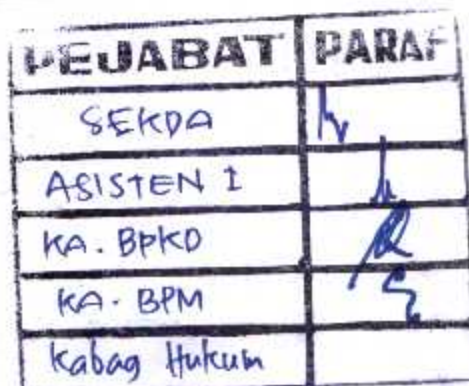 PEJABAT PARAF
SEKDA
ASISTEN I
KA. BPKD
KA. BPM
Kabag Hukum